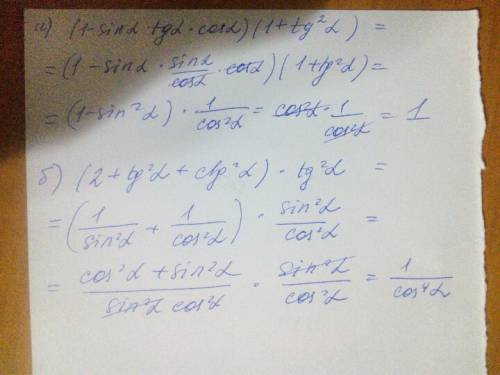 а) (1-sinα tgα · cosα)(1+tg²α) =
= (1 - sinα · sinα/cosα · cosα)(1+tg²α) =
= (1-sin²α) · 1/cos²α = cos²α · 1/cos²α = 1
б) (2+tg²α+ctg²α) · tg²α =
= (1/sin²α + 1/cos²α) · sin²α/cos²α =
= cos²α + sin²α/sin²α cos²α · sin²α/cos²α = 1/cos⁴α